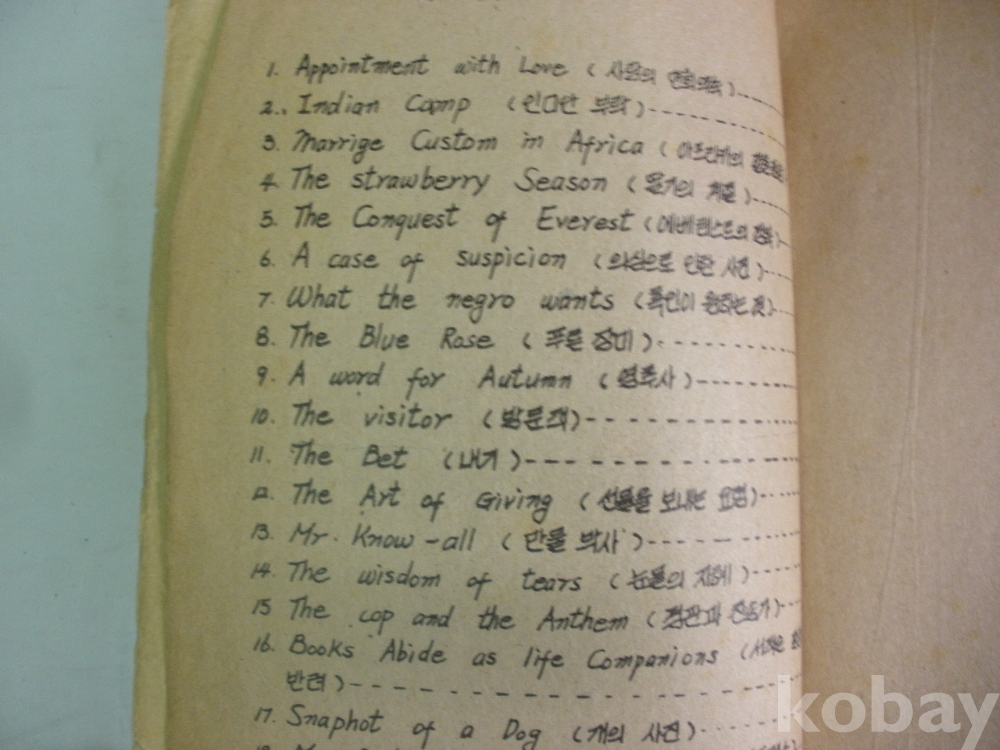 1. Appointment with Love (사랑의
2.. Indian Camp (인디안 부락)
3. Marrige Custom in Africa (아프리카의
4. The strawberry Season (딸기의 계절)
5. The Conquest of Everest (에베레스트의 정복
6. A case of suspicion (의심으로 인한 사건)
7. What the negro wants (흑인이 원하는 것)
8. The Blue Rose (푸른 장미)
9. A word for Autumn (영추사)
10. The visitor (방문객)
11. The Bet (내기)
12. The Art of Giving (선물을 보내는 요령)
13. Mr. Know-all (만물 박사)
14. The wisdom of tears (눈물의 지혜)
15 The cop and the Anthem (경관과 찬송가)
16. Books Abide as life Companions (서적은
반려)
17. Snaphot of a Dog (개의 사진)
kobay